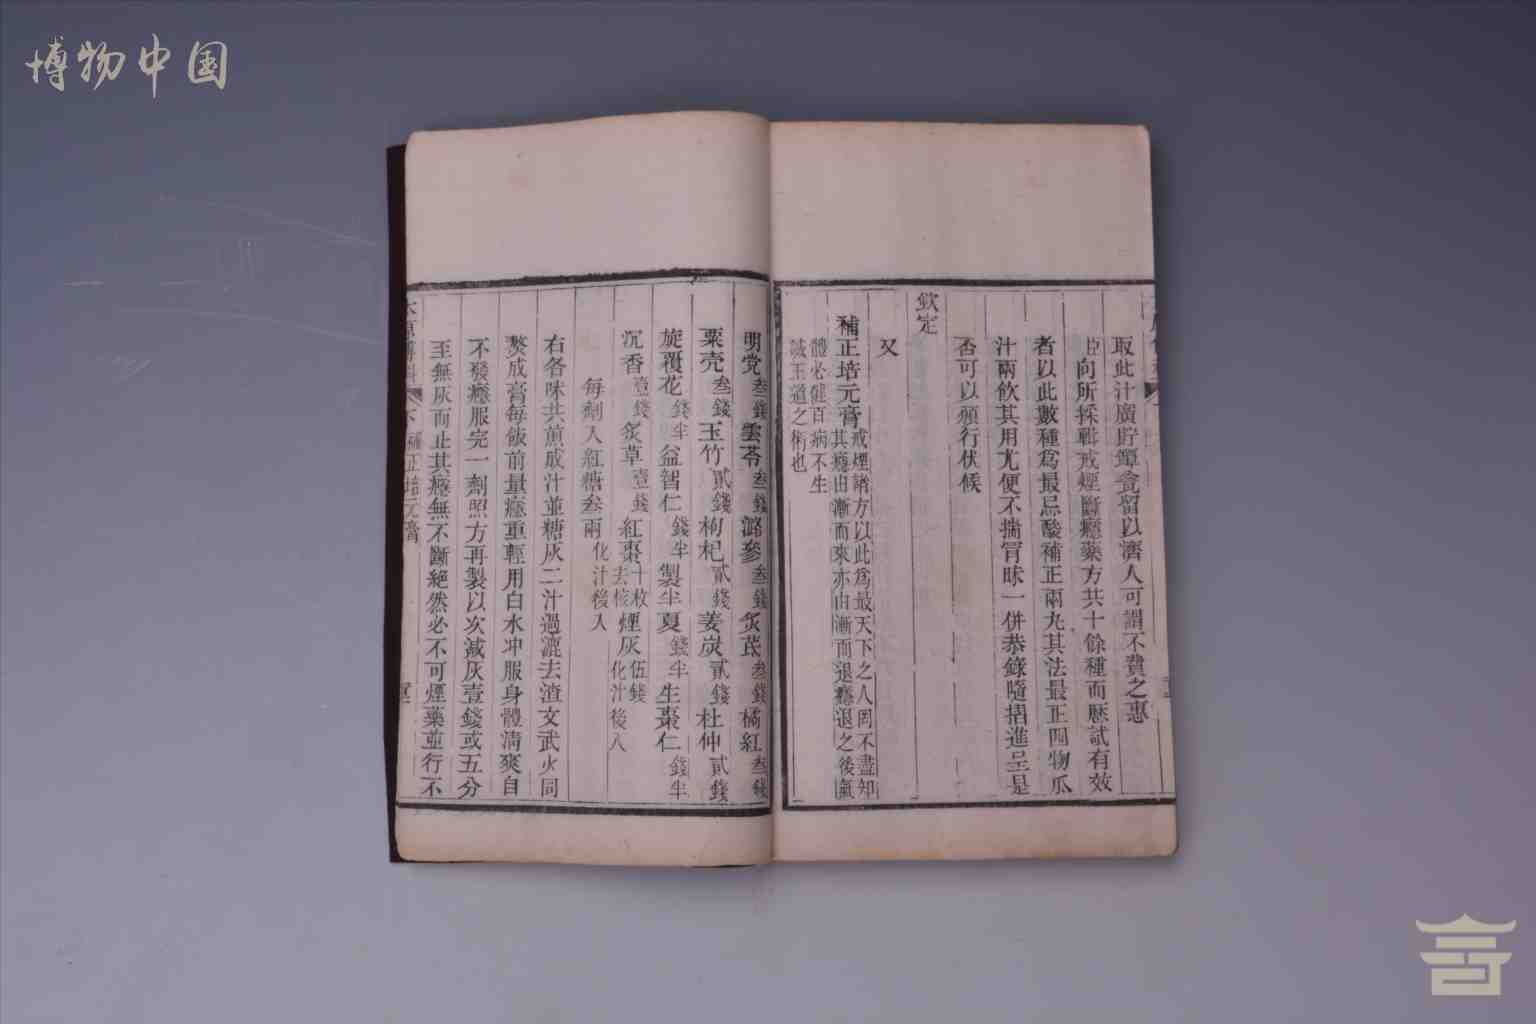 博物中国
取此汁廣貯罈瓮留以濟人可謂不費之惠
臣向所採輯戒煙斷癮藥方共十餘種而歷試有效
者以此數種爲最忌酸補正兩丸其法最正四物瓜
汁兩飲其用尤便不揣冒昧一併恭錄隨摺進呈是
否可以頒行伏候
欽定
又
補正培元膏
戒煙諸方以此爲最天下之人罔不盡知
其癮由漸而來亦由漸而退癮退之後氣
體必健百病不生
誠王道之術也
明党叁錢雲苓叁錢潞參叁錢炙芪叁錢橘紅叁錢
粟壳叁錢玉竹貳錢枸杞貳錢姜炭貳錢杜仲貳錢
旋覆花錢半益智仁錢半製半夏錢半生棗仁錢半
沉香壹錢炙草壹錢紅棗十枚去核煙灰伍錢化汁後入
每劑入紅糖叁兩化汁後入
右各味共煎成汁並糖灰二汁過漉去渣文武火同
熬成膏每飯前量癮重輕用白水冲服身體清爽自
不發癮服完一劑照方再製以次減灰壹錢或五分
至無灰而止其癮無不斷絕然必不可煙藥並行不
下 補正培元膏